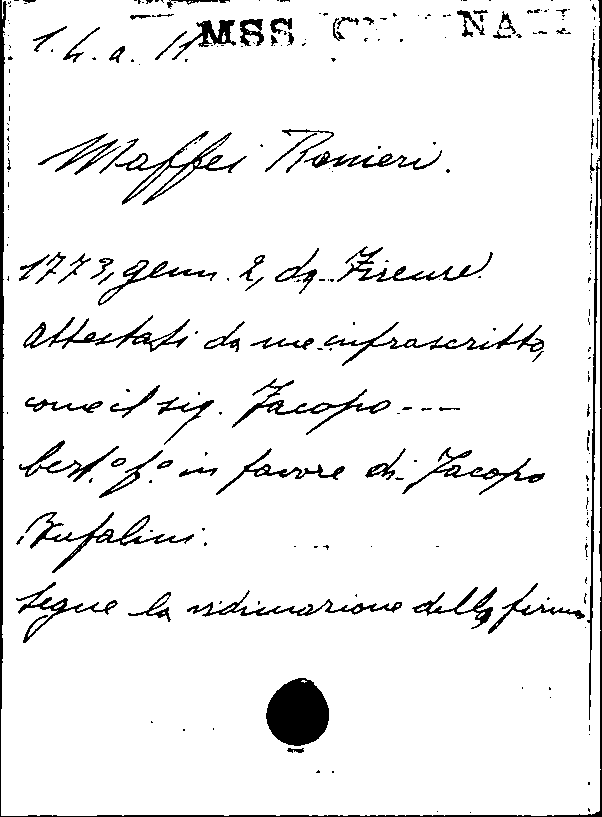 MSS.
1. h. a. 11.
Maffei Ranieri.
1773, genn. 2, da Firenze.
Attestasi da me infrascritto,
come il sig. Jacopo ---
in favore di Jacopo
Bufalini.
Segue la vidimazione della firma